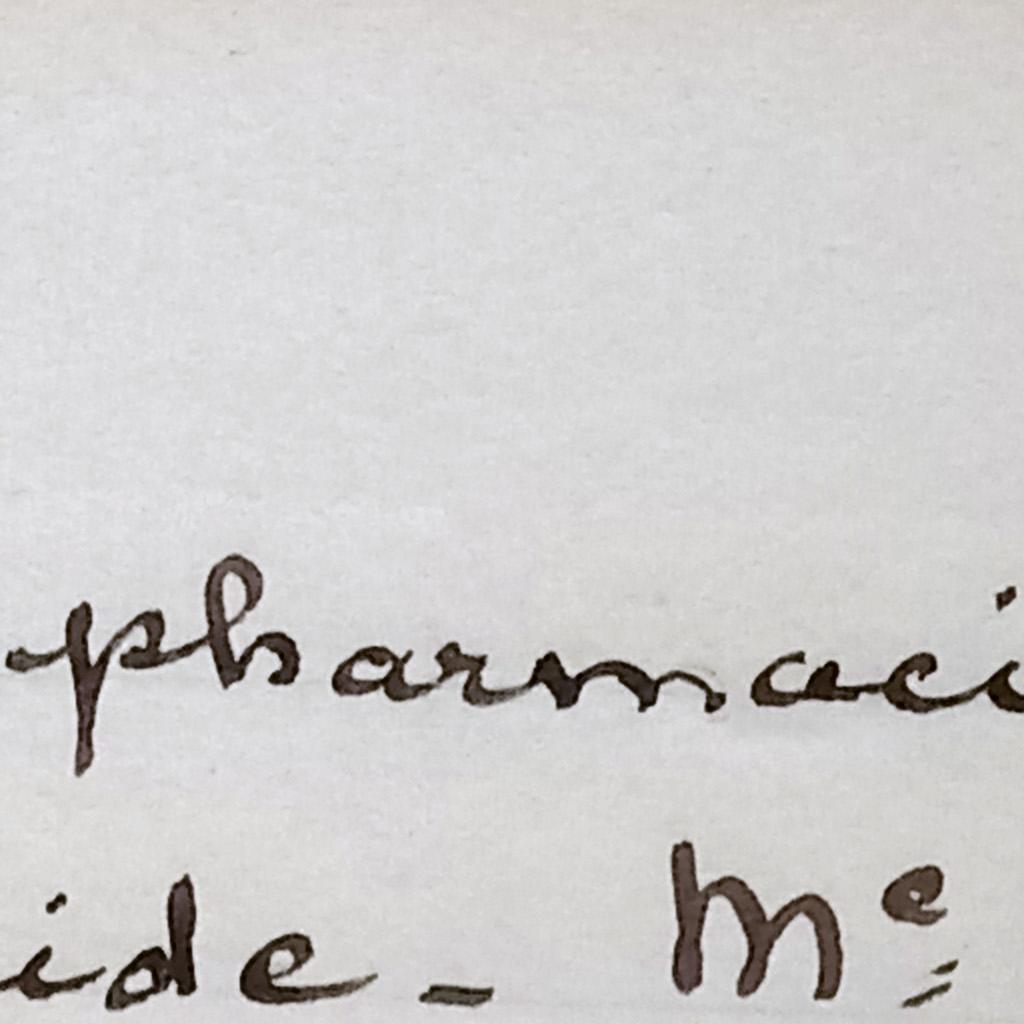 pharmaci
ide - Me